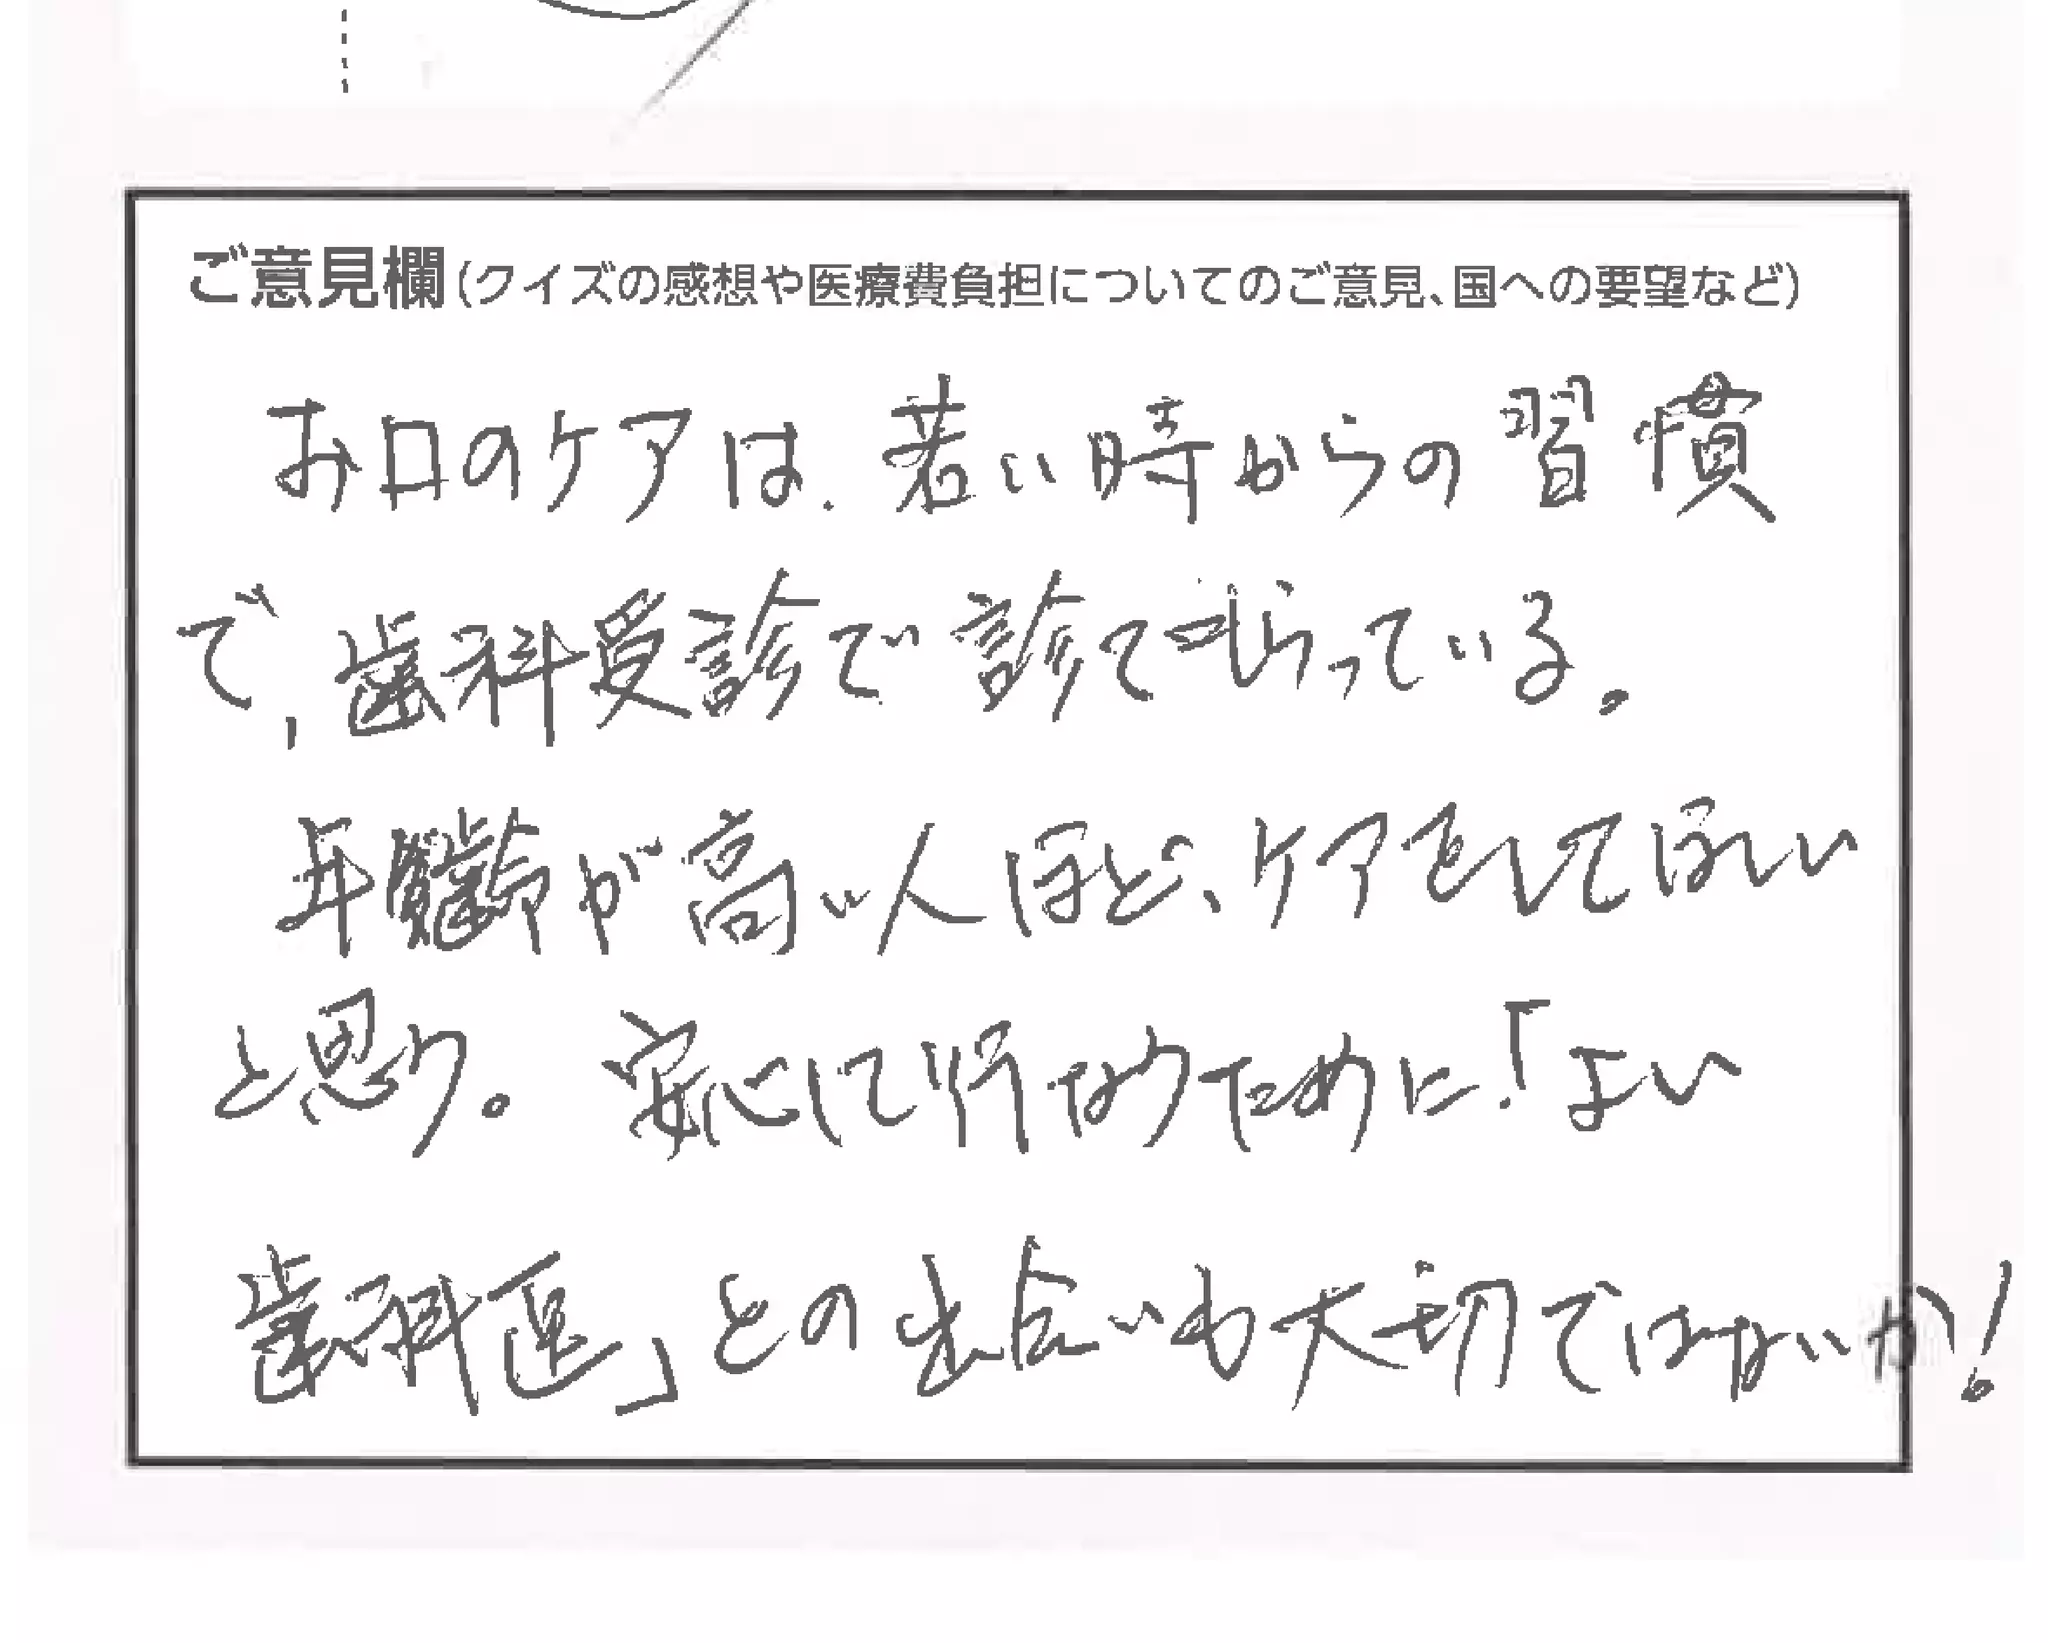 ご意見欄(クイズの感想や医療費負担についてのご意見、国への要望など)
お口のケアは、若い時からの習慣
で、歯科受診で診てもらっている。
年齢が高い人ほど、ケアをしてほしい
と思う。安心して行なうために!「よい
歯科医」との出会いも大切ではないか!